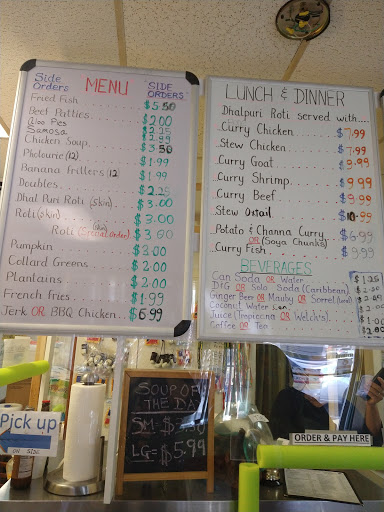 Side Orders
MENU
SIDE ORDERS
Fried Fish $5.50
Beef Patties $2.00
Aloo Pes $2.25
Samosa $2.99
Chicken Soup $3.50
Pholourie (12) $1.99
Banana Fritters 12 $1.99
Doubles $2.25
Dhal Puri Roti (skin) $3.00
Roti (skin) $3.00
Roti $3.00
Pumpkin $3.00
Collard Greens $2.00
Plantains $2.00
French Fries $1.99
Jerk OR BBQ Chicken $6.99
LUNCH & DINNER
Dhalpuri Roti served with....
Curry Chicken $7.99
Stew Chicken $7.99
Curry Goat $9.99
Curry Shrimp $9.99
Curry Beef $9.99
Stew Oxtail $10.99
Potato & Channa Curry $6.99
OR (Soya Chunks)
Curry Fish $9.99
BEVERAGES
Can Soda OR Water $1.25
DIG OR Sola Beda (Caribbean)
Ginger Beer OR Mauby OR Sorrel
Coconut Water
Juice (Tropicana OR Welch's)
Coffee OR Tea
SOUP OF
THE DAY
SM = $
LG = $5.99
Pick up
ON SIDE
ORDER & PAY HERE